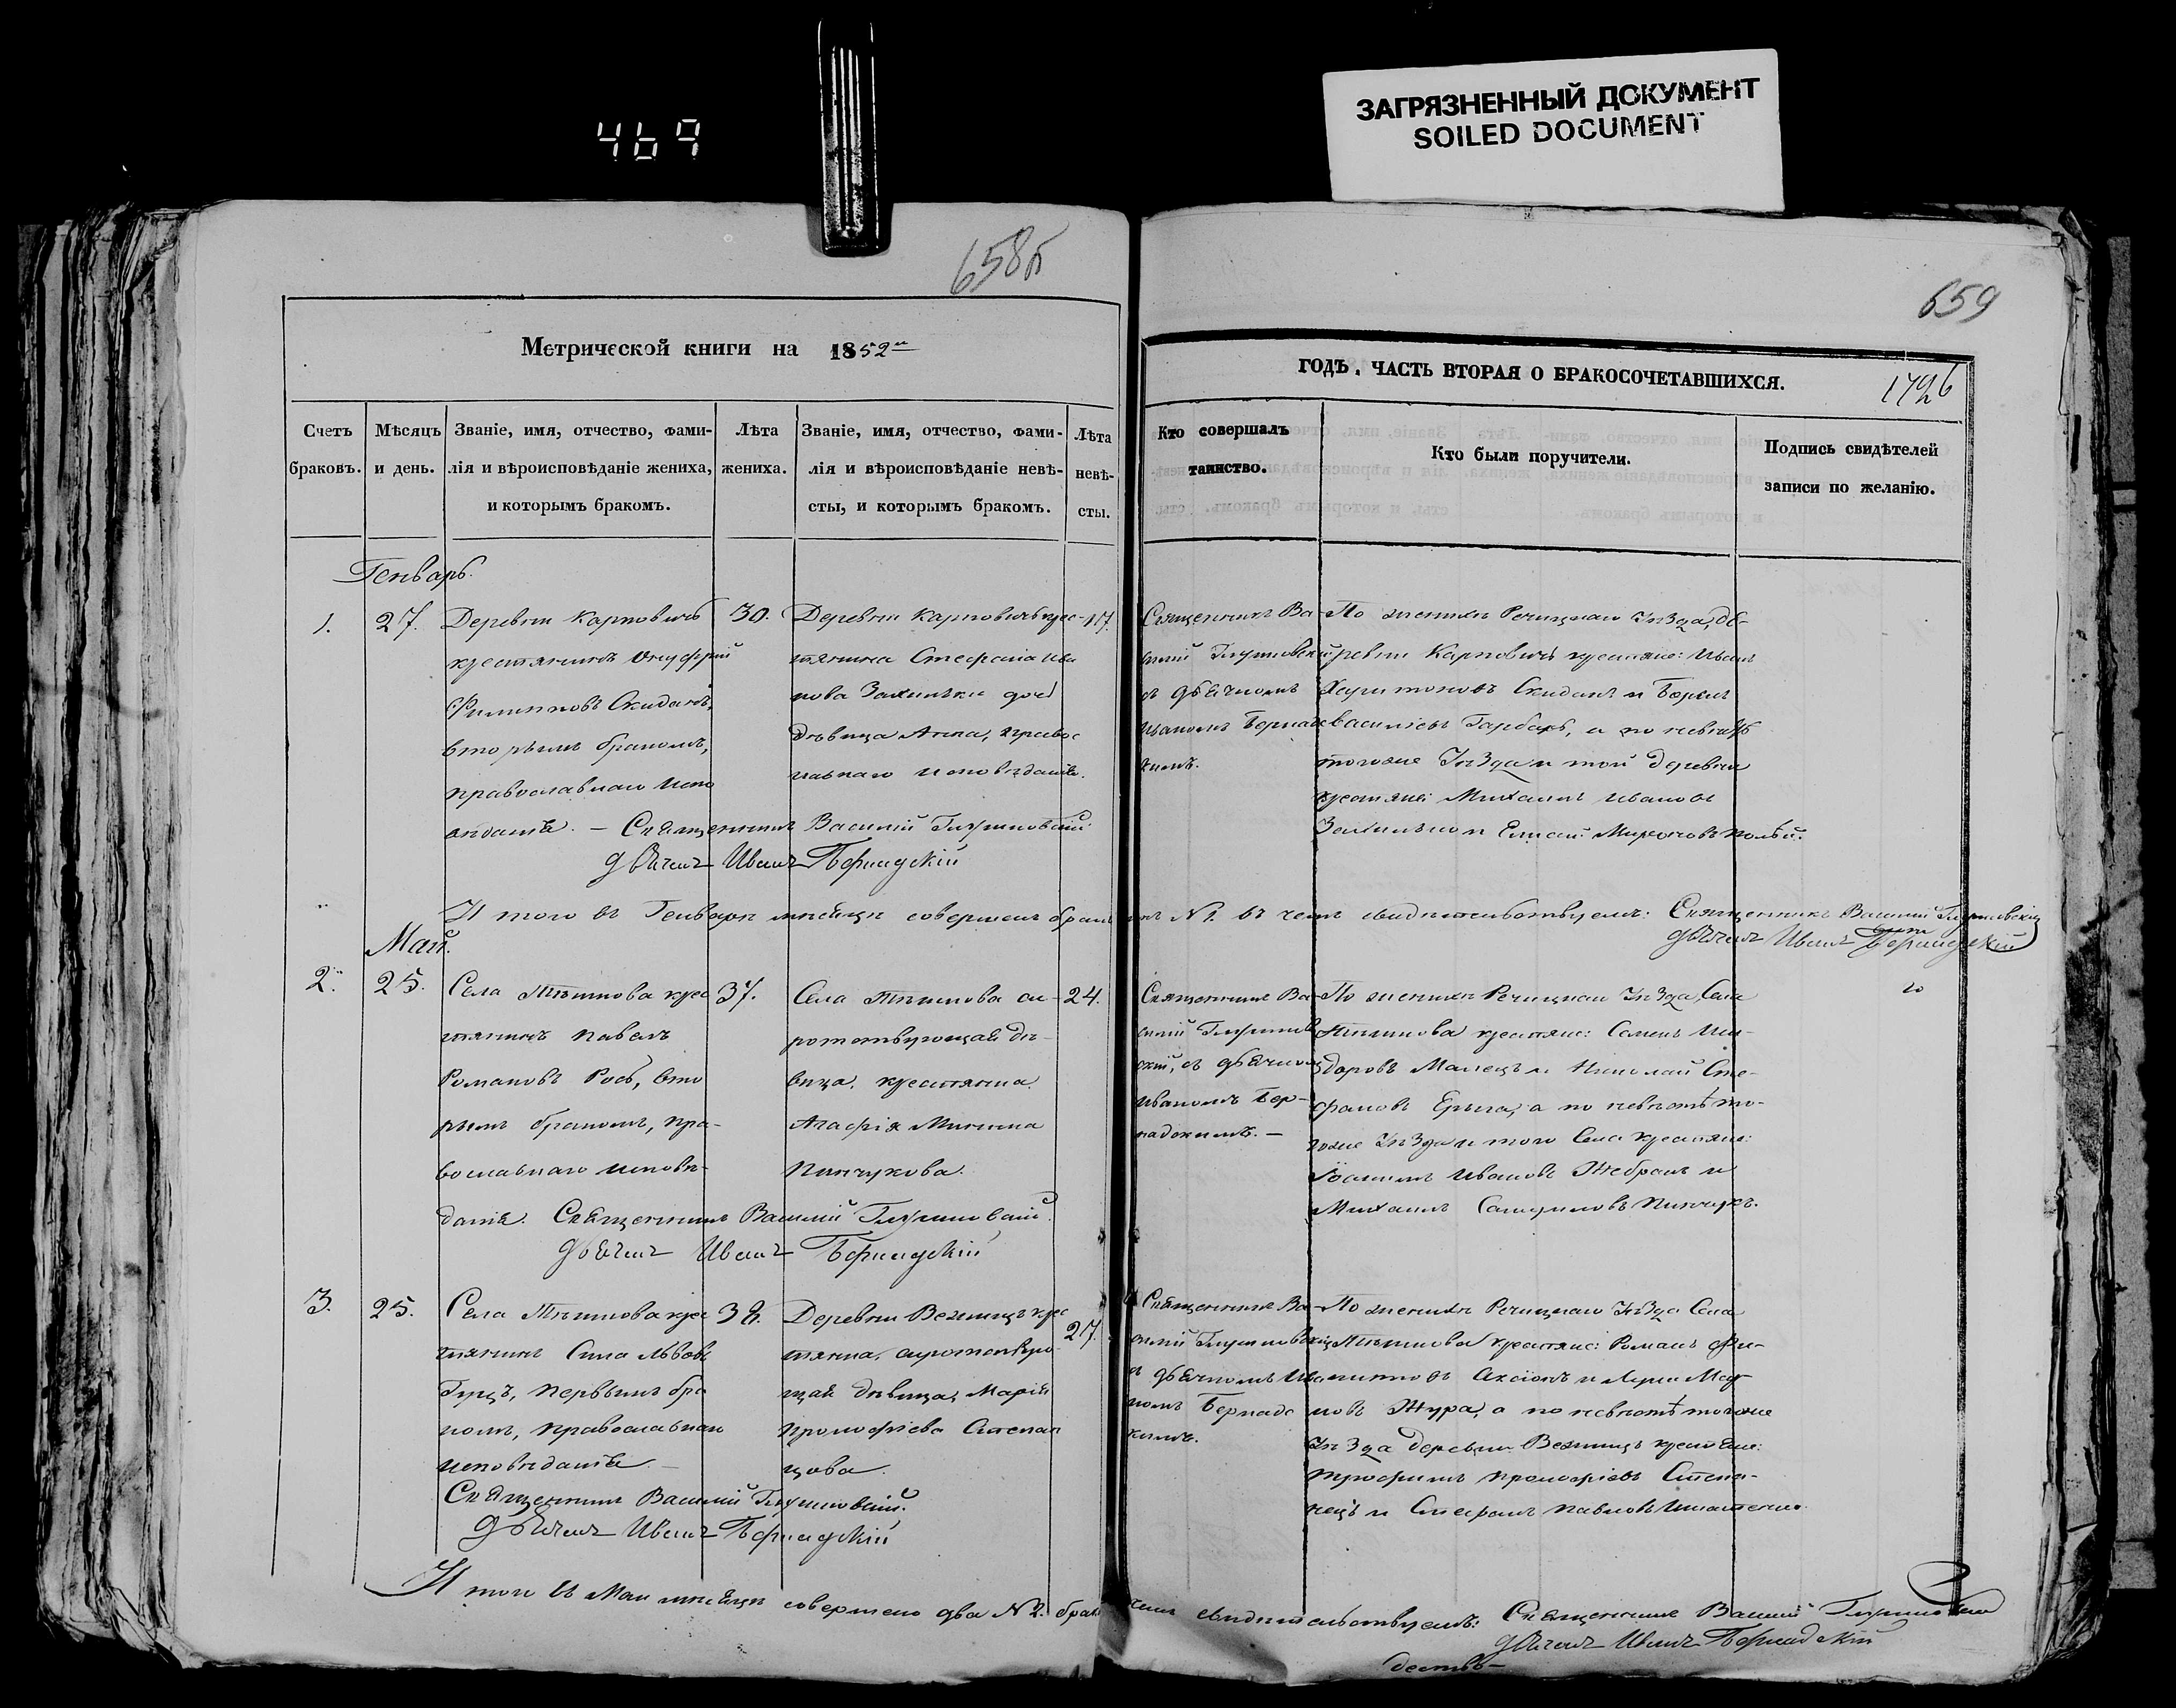 469
ЗАГРЯЗНЕННЫЙ ДОКУМЕНТ
SOILED DOCUMENT
658б
659
Метрической книги на 1852й
ГОДЪ, ЧАСТЬ ВТОРАЯ О БРАКОСОЧЕТАВШИХСЯ.
Счетъ
браковъ.
Мѣсяцъ
и день.
Званіе, имя, отчество, фами-
лія и вѣроисповѣданіе жениха,
и которымъ бракомъ.
Лѣта
жениха.
Званіе, имя, отчество, фами-
лія и вѣроисповѣданіе невѣ-
сты, и которымъ бракомъ.
Лѣта
невѣ-
сты.
Кто совершалъ
таинство.
Кто были поручители.
Подпись свидѣтелей
записи по желанію.
Генварь.
1.
27.
Деревни Карповичъ
крестьянинъ Онуфрій
Филиповъ Скиданъ,
вторымъ бракомъ,
православнаго испо
вѣданія. — Священникъ Василій Глушовскій
Дьячекъ Иванъ Бернадскій
30.
Деревни Карповичъ крес-
тянина Стефана Ива
нова дочь
дѣвица Анна, правос
лавнаго исповѣданія.
17.
Священникъ Ва
силій Глушовскій
съ дьячкомъ
Иваномъ Бернадс
кимъ.
По женихѣ Речицкаго Уѣзда, де-
ревни Карповичъ крестяне: Иванъ
Харитоновъ Скиданъ и
Василіевъ а по невѣстѣ
тогоже Уѣзда и той деревни
крестяне: Михаилъ Ивановъ
и Елисей Мироновъ
И того въ Генварѣ мѣсяцѣ совершенъ бракъ № 1. въ чемъ свидѣтельствуемъ: Священникъ Василій Глушовскій
Дьячекъ Иванъ Бернадскій
Май.
2.
25.
Села Тѣшкова крес
тянинъ Павелъ
Романовъ Рось, вто
рымъ бракомъ, пра-
вославнаго исповѣ-
данія. Священникъ Василій Глушовскій
Дьячекъ Иванъ Бернадскій
37.
Села Тѣшкова си-
ротствующая дѣ-
вица, крестянка
Агафія Минина
Пинчукова.
24.
Священникъ Ва
силій Глушовс
кій, съ дьячком
Иваномъ Бер-
надскимъ. —
По женихѣ Речицкаго Уѣзда, Села
Тѣшкова крестяне: Семенъ Иси-
доровъ Малецъ и Николай Сте-
фановъ а по невѣстѣ то-
гоже Уѣзда и того Села крестяне:
Іоакимъ Ивановъ Жебракъ и
Михаилъ Самуиловъ Пинчукъ.
3.
25.
Села Тѣшкова крес
тянинъ Сила Львовъ
первымъ бра
комъ, православнаго
исповѣданія. —
Священникъ Василій Глушовскій.
Дьячекъ Иванъ Бернадскій
38.
Деревни крес
тянка, сиротствую-
щая дѣвица, Марія
Прокофіева Степан
цова.
27.
Священникъ Ва
силій Глушовскій
съ дьячкомъ Ива
номъ Бернадс
кимъ.
По женихѣ Речицкаго Уѣзда Села
Тѣшкова крестяне: Романъ Фи-
липповъ и
Жура, а по невѣстѣ тогоже
Уѣзда деревни крестяне:
Трофимъ Прокофіевъ Степа-
нецъ и Стефанъ Павловъ
И того въ Маи мѣсяцѣ совершено два № 2. брака чемъ свидѣтельствуемъ: Священникъ Василій Глушовскій
Дьячекъ Иванъ Бернадскій